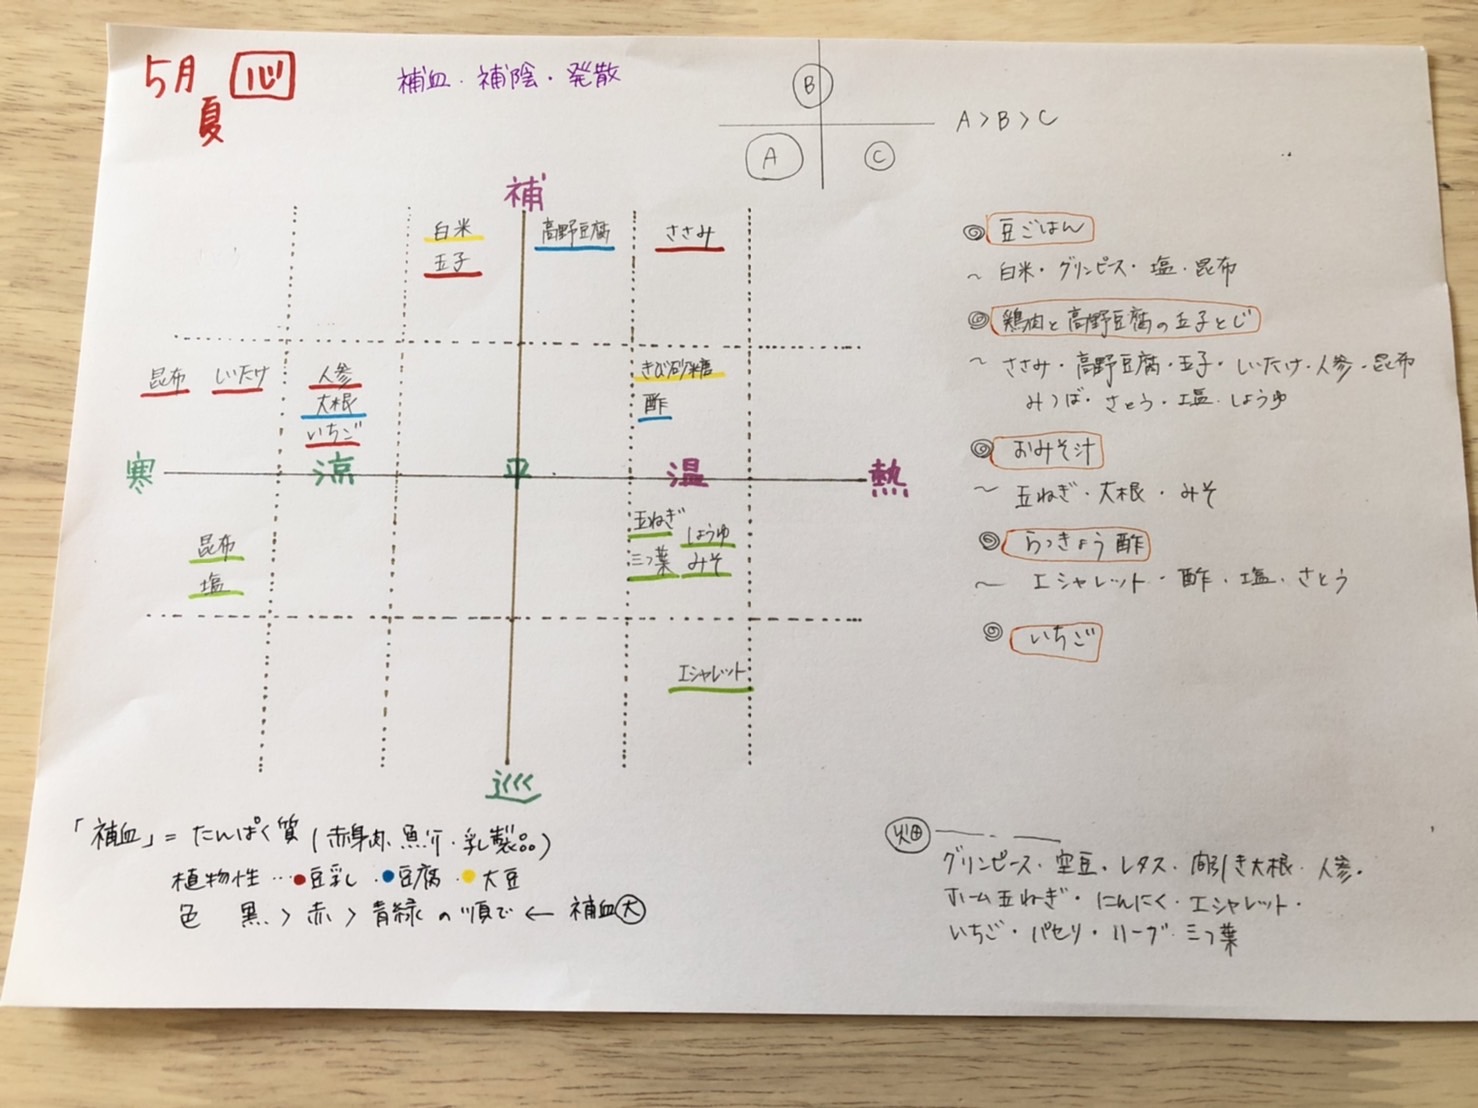 5月 心
夏
補血・補陰・発散
B
A
C
A>B>C
補
白米
玉子
高野豆腐
ささみ
昆布 しいたけ
人参
大根
いちご
きび砂糖
酢
寒 涼 平 温 熱
昆布
塩
玉ねぎ しょうゆ
三つ葉 みそ
エシャレット
巡
豆ごはん
~ 白米・グリンピース・塩・昆布
鶏肉と高野豆腐の玉子とじ
~ ささみ・高野豆腐・玉子・しいたけ・人参・昆布
みつば・さとう・塩・しょうゆ
おみそ汁
~ 玉ねぎ・大根・みそ
らっきょう酢
~ エシャレット・酢・塩・さとう
いちご
「補血」=たんぱく質(赤身肉、魚介・乳製品)
植物性…●豆乳・●豆腐・●大豆
色 黒>赤>青緑の順で←補血大
畑
グリンピース・空豆・レタス・間引き大根・人参・
ホーム玉ねぎ・にんにく・エシャレット・
いちご・パセリ・ハーブ・三つ葉